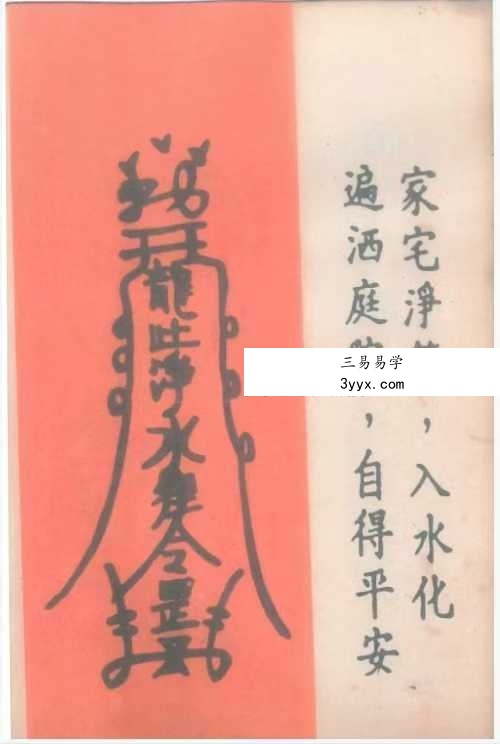 家宅淨，入水化
遍洒庭，自得平安
龍吐淨水
令
三易易学
3yyx.com